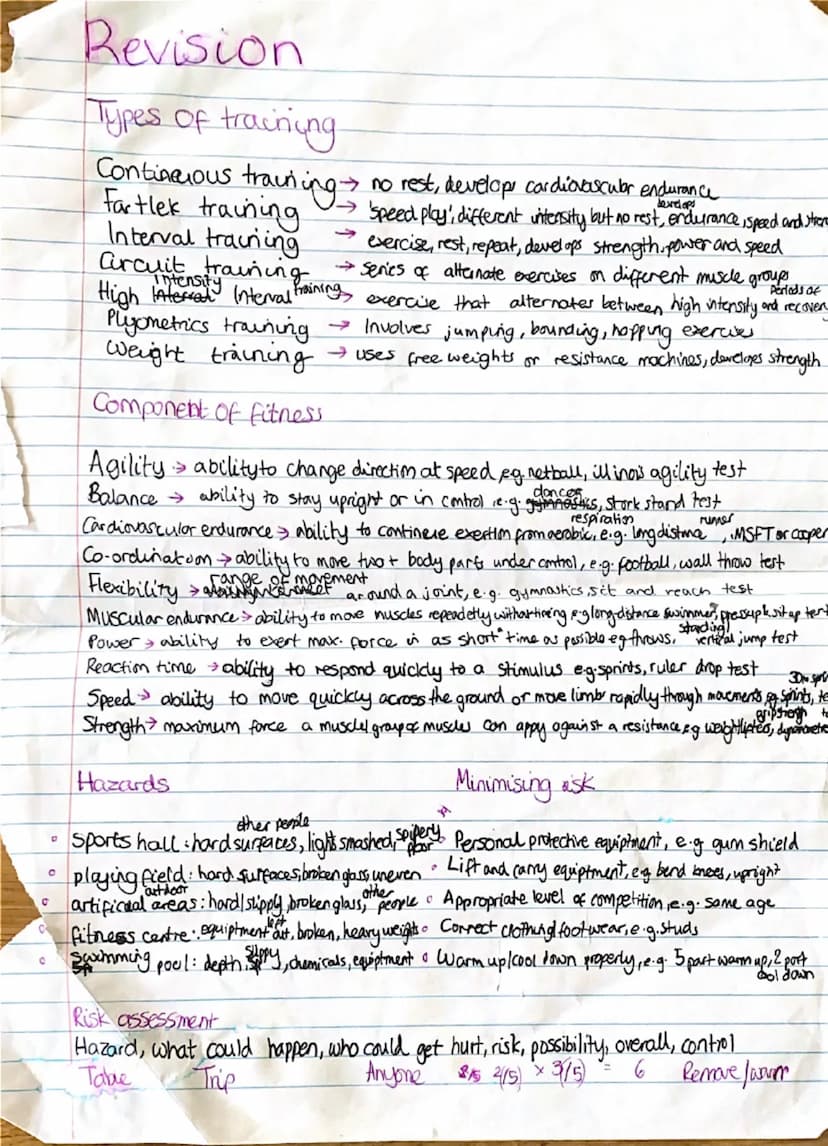 Revision
Types of training
Continuous training → no rest, develops cardiovascular endurance
Fartlek training → 'speed play', different intensity but no rest, develops endurance, speed and stren
Interval training → exercise, rest, repeat, develops strength, power and speed
Circuit training → series of alternate exercises on different muscle groups
High Intensity Interval training → exercise that alternates between high intensity and periods of recovery
Plyometrics training → Involves jumping, bounding, hopping exercise
Weight training → uses free weights or resistance machines, develops strength
Component of fitness
Agility → ability to change direction at speed, e.g. netball, illinois agility test
Balance → ability to stay upright or in control, e.g. dancer, stork stand test
Cardiovascular endurance → ability to continue exertion from aerobic respiration, e.g. long distance runner, MSFT or cooper
Co-ordination → ability to move two + body parts under control, e.g. football, wall throw test
Flexibility → range of movement around a joint, e.g. gymnastics, sit and reach test
Muscular endurance → ability to move muscles repeadetly without tiring e.g long-distance swimmer, press up & sit up test
Power → ability to exert max. force in as short time as possible eg throws, standing/vertical jump test
Reaction time → ability to respond quickly to a stimulus e.g. sprints, ruler drop test
Speed → ability to move quickly across the ground or move limbs rapidly through movements eg sprints, 30m sprint te
Strength → maximum force a muscle/group of muscles can appy against a resistance, e.g weightlifting, grip strength dynamometer te
Hazards Minimising risk
• Sports hall: hard surfaces, other people, light smashed, slipery floor • Personal protective equiptment, e.g gum shield
• playing field: hard surfaces, broken glass, uneven • Lift and carry equiptment, e.g bend knees, upright
• artificial outdoor areas: hard/slippy, broken glass, other people • Appropriate level of competition, e.g. same age
• fitness centre: equiptment left out, broken, heavy weights • Correct clothing/footwear, e.g. studs
• Swimming pool: depth, slippy, chemicals, equiptment • Warm up/cool down properly, e.g. 5 part warm up, 2 part cool down
Risk assessment
Hazard, what could happen, who could get hurt, risk, possibility, overall, control
Table Trip Anyone 2(/5) × 3(/5) = 6 Remove/